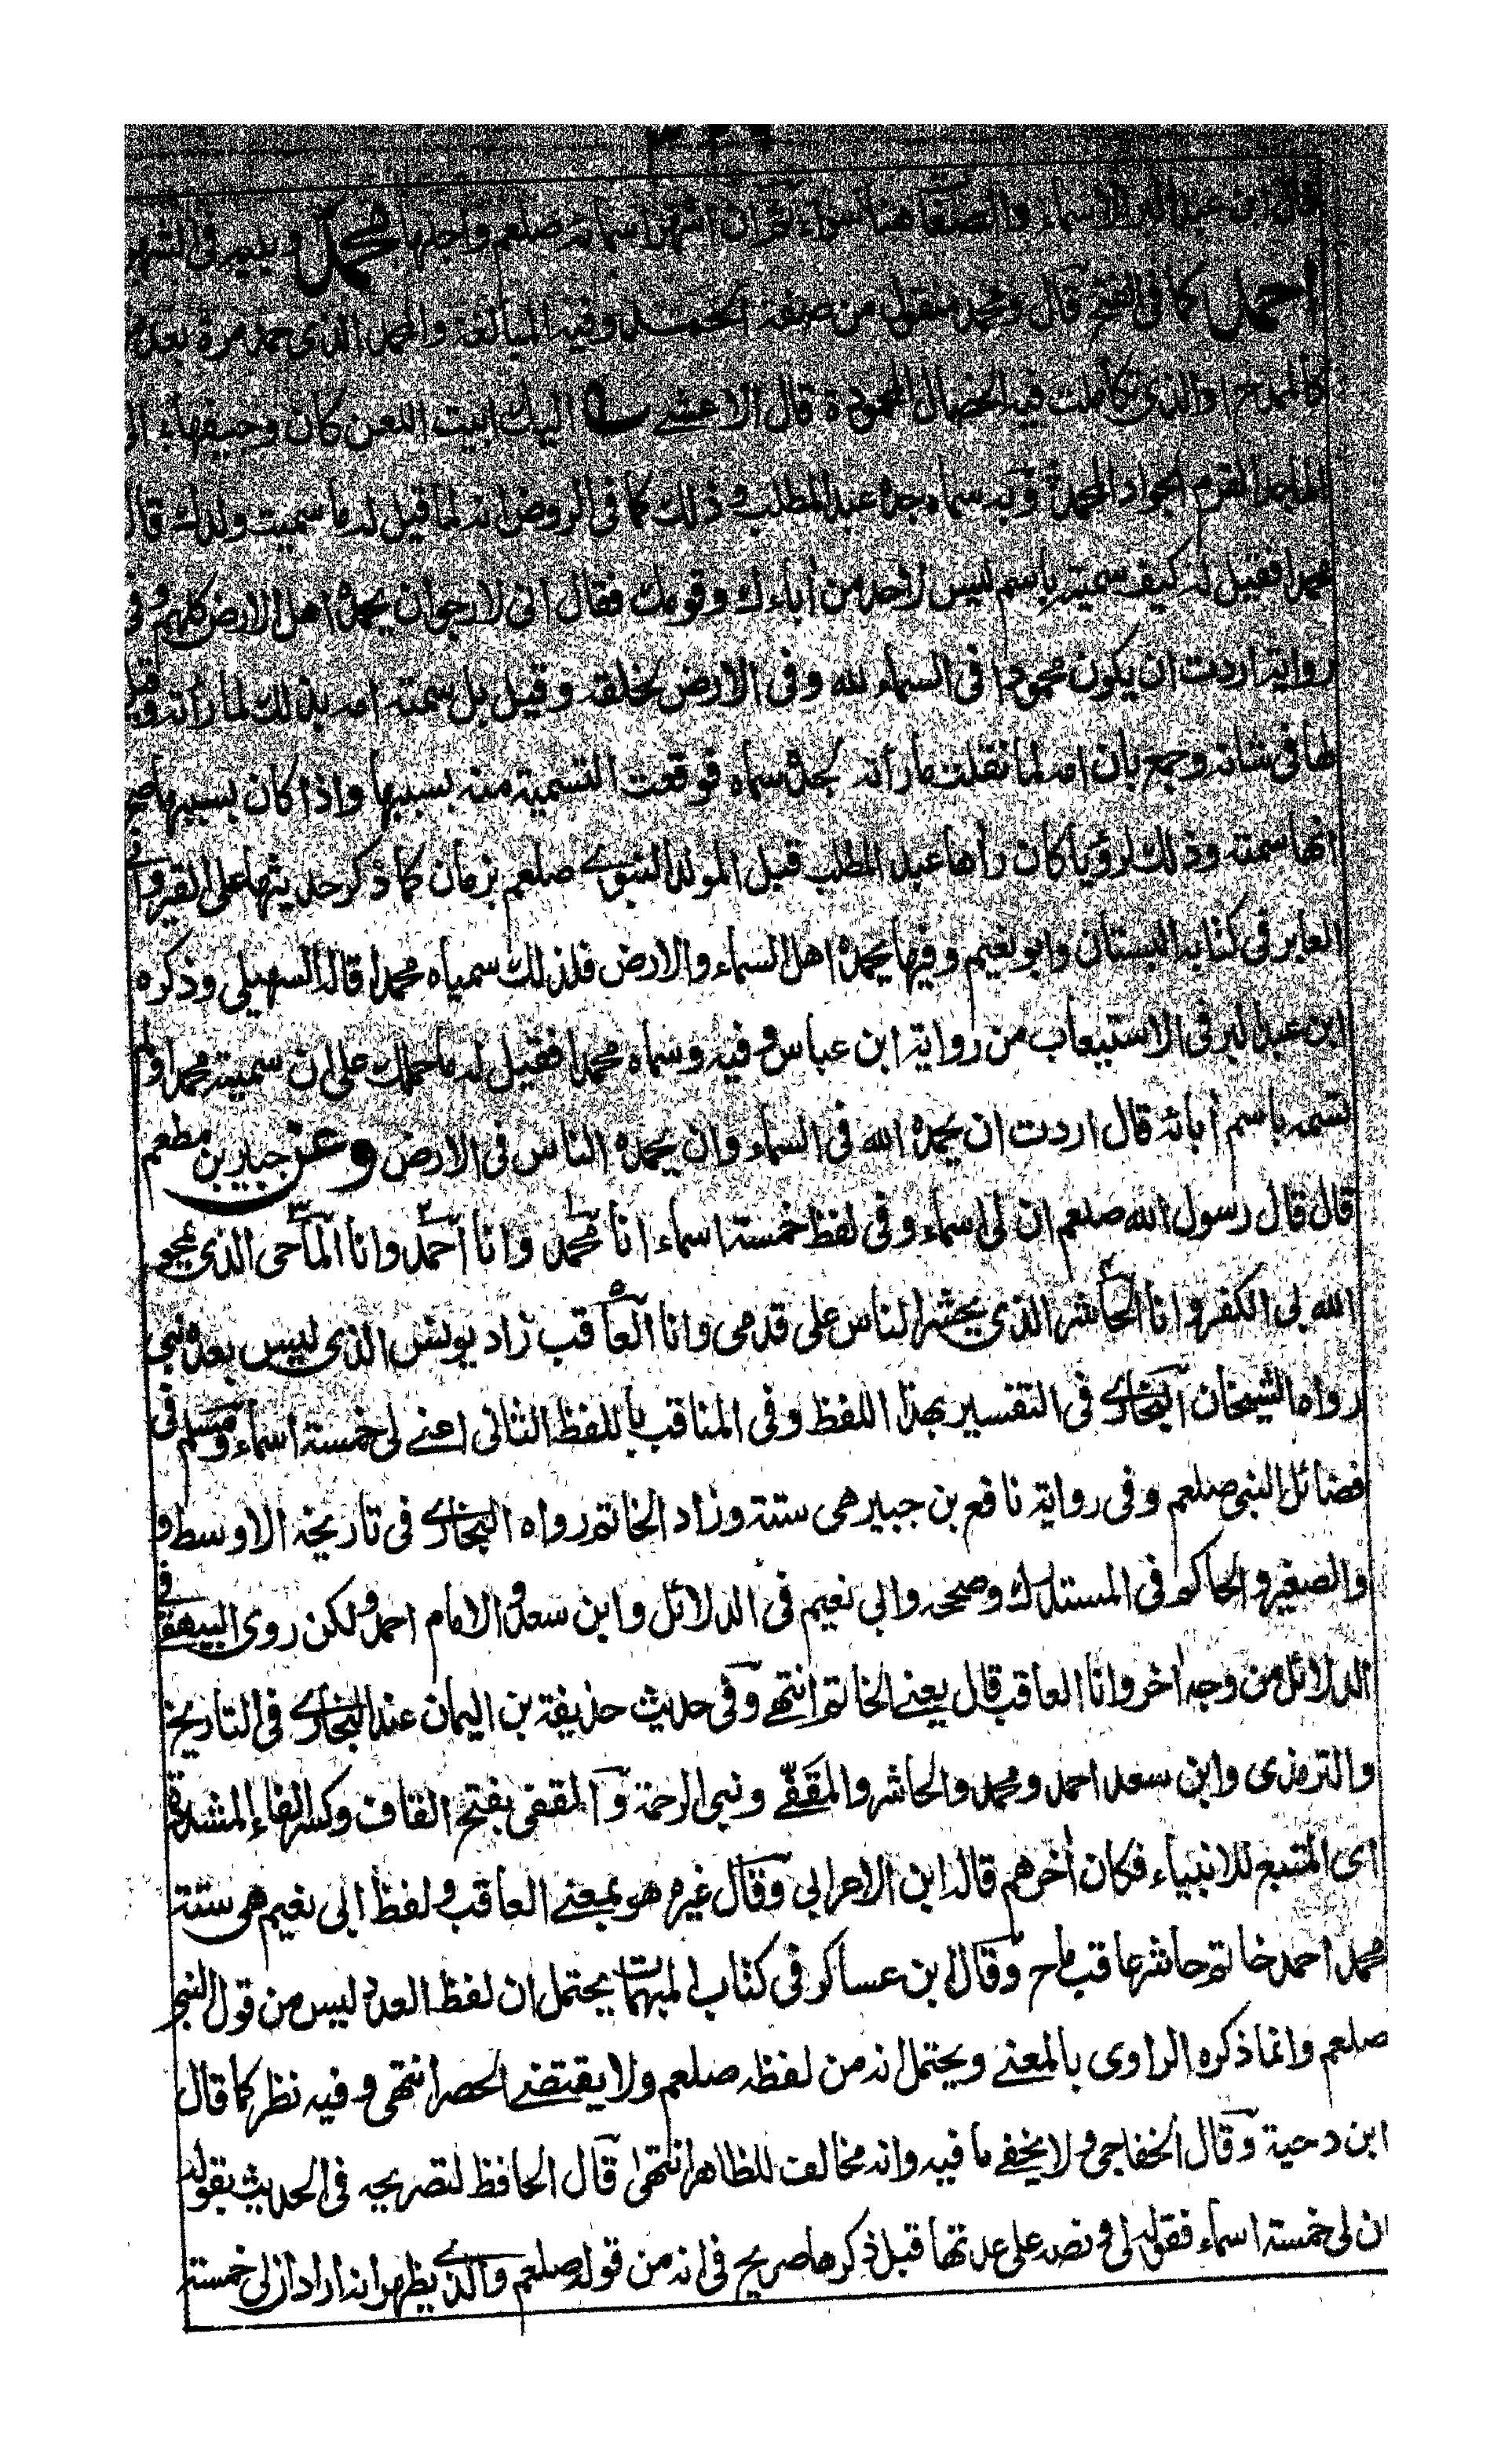 قال ابن عبد البر الاسماء والصفات هنا سواء ثم ان اشهر اسمائه صلعم واجلها محمد ويليه فى
احمد كما فى الفتح قال ومحمد منقول من صفة الحمد وفيه المبالغة والمحمد الذى حمد مرة بعد
كالممدح او الذى تكاملت فيه الخصال المحمودة قال الاعشے اليك ابيت اللعن كان وجيفها
الماجد القرم الجواد المحمد وبه سماه جده عبد المطلب وذلك كما فى الروض انه لما قيل له ما سميت ولدك قال
محمدا فقيل له كيف سميته باسم ليس لاحد من آباءك وقومك فقال انى لارجو ان يحمده اهل الارض كلهم وفى
رواية اردت ان يكون محمودا فى السماء لله وفى الارض لخلقه وقيل بل سمته امه بذلك لما رأته وقيل
لها فى شانه وجمع بان امه لما نقلت ما رأته لجده سماه فوقعت التسمية منه بسببها واذا كان بسببها صح
انها سمته وذلك لرؤيا كان رأها عبد المطلب قبل المولد النبوے صلعم بزمان كما ذكر حديثها على القيروانى
العابر فى كتابه البستان وابو نعيم وفيها يحمده اهل السماء والارض فلذلك سمياه محمدا قاله السهيلى وذكره
ابن عبد البر فى الاستيعاب من رواية ابن عباس وفيه وسماه محمدا فقيل له ما حملك على ان سميته محمدا ولم
تسمه باسم آبائه قال اردت ان يحمده الله فى السماء وان يحمده الناس فى الارض وعن جبير بن مطعم
قال قال رسول الله صلعم ان لى اسماء وفى لفظ خمسة اسماء انا محمد وانا احمد وانا الماحى الذى يمحو
الله بى الكفر وانا الحاشر الذى يحشر الناس على قدمى وانا العاقب زاد يونس الذى ليس بعده نبى
رواه الشيخان البخارے فى التفسير بهذا اللفظ وفى المناقب باللفظ الثانى اعنے لى خمسة اسماء ومسلم فى
فضائل النبى صلعم وفى رواية نافع بن جبير هى ستة وزاد الخاتم رواه البخارے فى تاريخه الاوسط و
والصغير والحاكم فى المستدرك وصححه وابى نعيم فى الدلائل وابن سعد والامام احمد ولكن روى البيهقے فى
الدلائل من وجه آخر وانا العاقب قال يعنے الخاتم انتهے وفى حديث حذيفة بن اليمان عند البخارے فى التاريخ
والترمذى وابن سعد احمد ومحمد والحاشر والمقفّے ونبى الرحمة والمقفى بفتح القاف وكسر الفاء المشددة
اى المتبع للانبياء فكان آخرهم قاله ابن الاعرابى وقال غيره هو بمعنے العاقب ولفظ ابى نعيم هى ستة
محمد احمد خاتم حاشر عاقب ماح وقال ابن عساكر فى كتاب المبهمات يحتمل ان لفظ العدد ليس من قول النبى
صلعم وانما ذكره الراوى بالمعنے ويحتمل انه من لفظه صلعم ولا يقتضے الحصر انتهى وفيه نظر كما قال
ابن دحية وقال الخفاجى ولا يخفے ما فيه وانه مخالف للظاهر انتهى قال الحافظ لتصريحه فى الحديث بقوله
ان لى خمسة اسماء فقوله لى ونصه على عدتها قبل ذكرها صريح فى انه من قوله صلعم والذے يظهر انه اراد ان لى خمسة